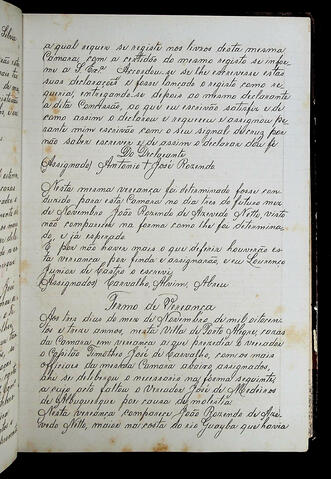 a qual requer se registe nos livros desta mesma
Camara, com a certidão do mesmo registo se infor-
me a S. Exª. Accordou-se se lhe escrevesse estas
suas declaração e fosse lançado o registo como re-
queria, entregando-se depois ao mesmo declarante
a dita Confissão, po que eu escrivão satisfiz e de
como assim o declarou e requereu e assignou pe-
rante mim escrivão com o seu signal de cruz por
não saber escrever e de assim o declarar dou fé
Do Declarante
(Assignado) Antonio + José Rozendo
Nesta mesma vereança foi determinado fosse con-
duzido para esta Camara no dia tres do futuro mez
de Novembro João Rozendo de Azevedo Netto, visto
não comparecer na forma como lhe foi determina-
do, e já esperado.
E por não haver mais o que deferir houverão es-
ta vereança por finda e assignarão, eu Lourenço
Junior de Castro o escrevi.
(Assignados) Carvalho, Alvim, Abreu
Termo de Vereança
Aos tres dias do mez de Novembro, de mil oitocen-
tos e treze annos, nesta Villa de Porto Alegre, cazas
da Camara, em vereança a que prezedia o vereador
o Capitão Timotheo José de Carvalho, com os mais
officiais da mesma Camara abaixo assignados,
ahi se deliberou o necessario na forma seguinte,
a cujo acto faltou o Vereador José de Medeiros
de Albuquerque por causa de molestia.
Nesta vereança compareceu João Rozendo de Aze-
vedo Netto, mator na costa do rio Guayba que havia